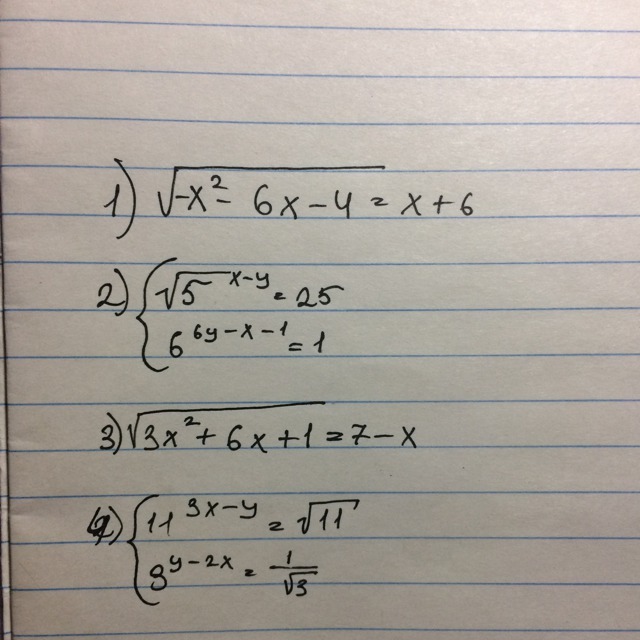 1) √(-x² - 6x - 4) = x + 6
2) { √5^(x-y) = 25
6^(6y-x-1) = 1
3) √(3x² + 6x + 1) = 7 - x
4) { 11^(3x-y) = √11
3^(y-2x) = 1/√3